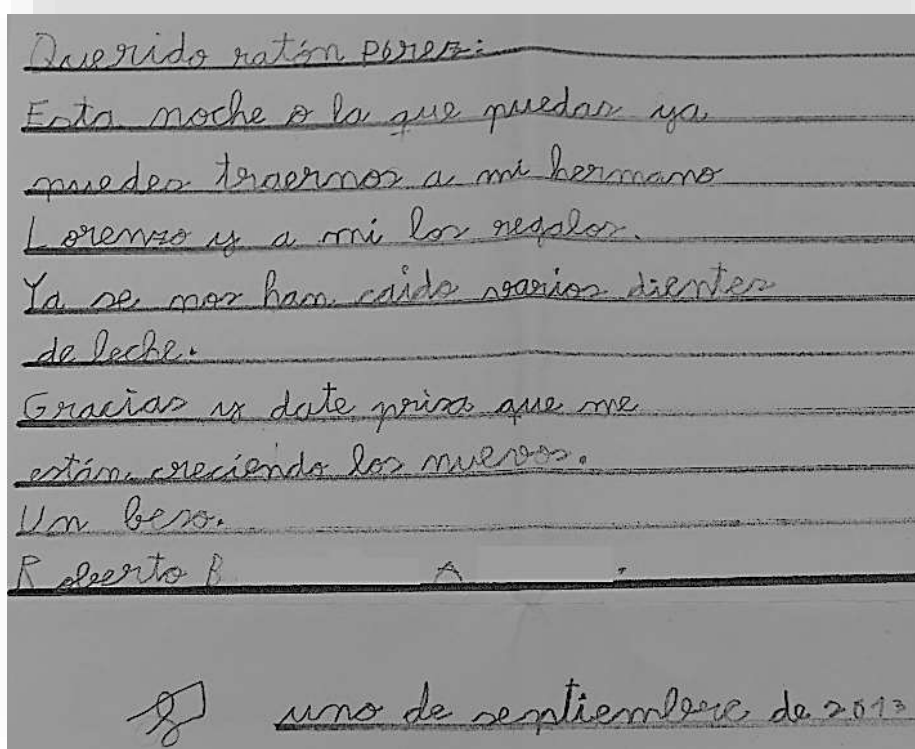 Querido ratón perez:
Esta noche o la que puedas ya
puedes traernos a mi hermano
Lorenzo y a mi los regalos.
Ya se nos han caido varios dientes
de leche.
Gracias y date prisa que me
están creciendo los nuevos.
Un beso.
Roberto B A.
uno de septiembre de 2013